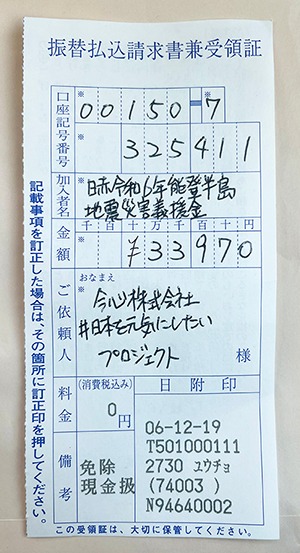 振替払込請求書兼受領証
口座記号番号
※
00150-7
※
325411
加入者名
※
日赤令和6年能登半島
地震災害義援金
金額
千百十万千百十円
※
¥33970
ご依頼人
おなまえ
※
株式会社
#日本を元気にしたい
プロジェクト
様
料金
(消費税込み)
0円
日附印
06-12-19
T501000111
2730 ユウチョ
(74003 )
N94640002
備考
免除
現金扱
記載事項を訂正した場合は、その箇所に訂正印を押してください。
この受領証は、大切に保管してください。